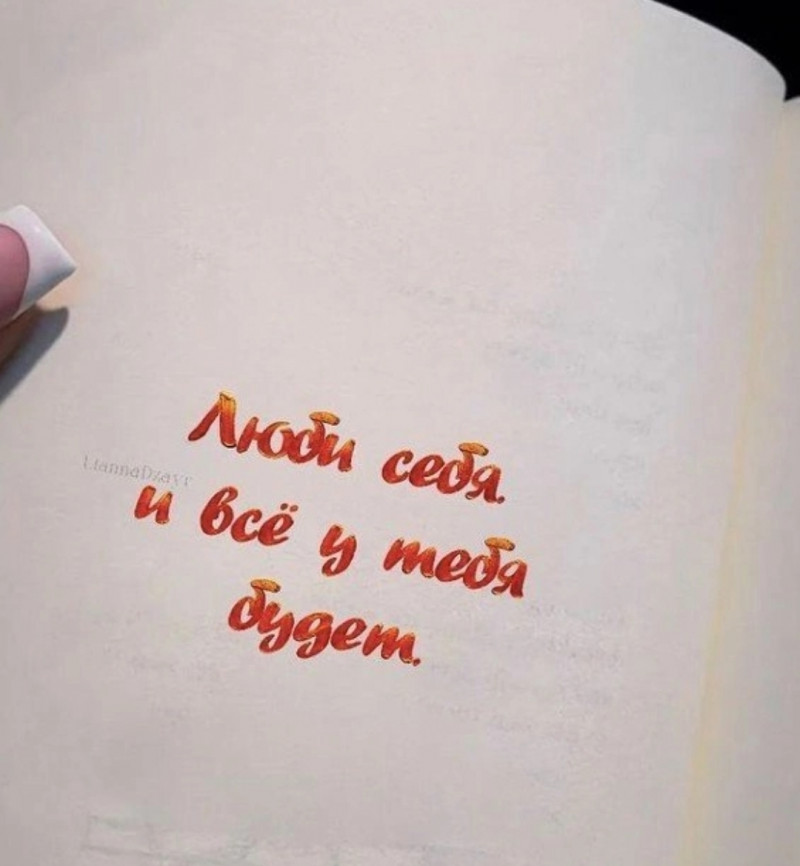 Люби себя.
LiannaDzayr
и всё у тебя
будет.